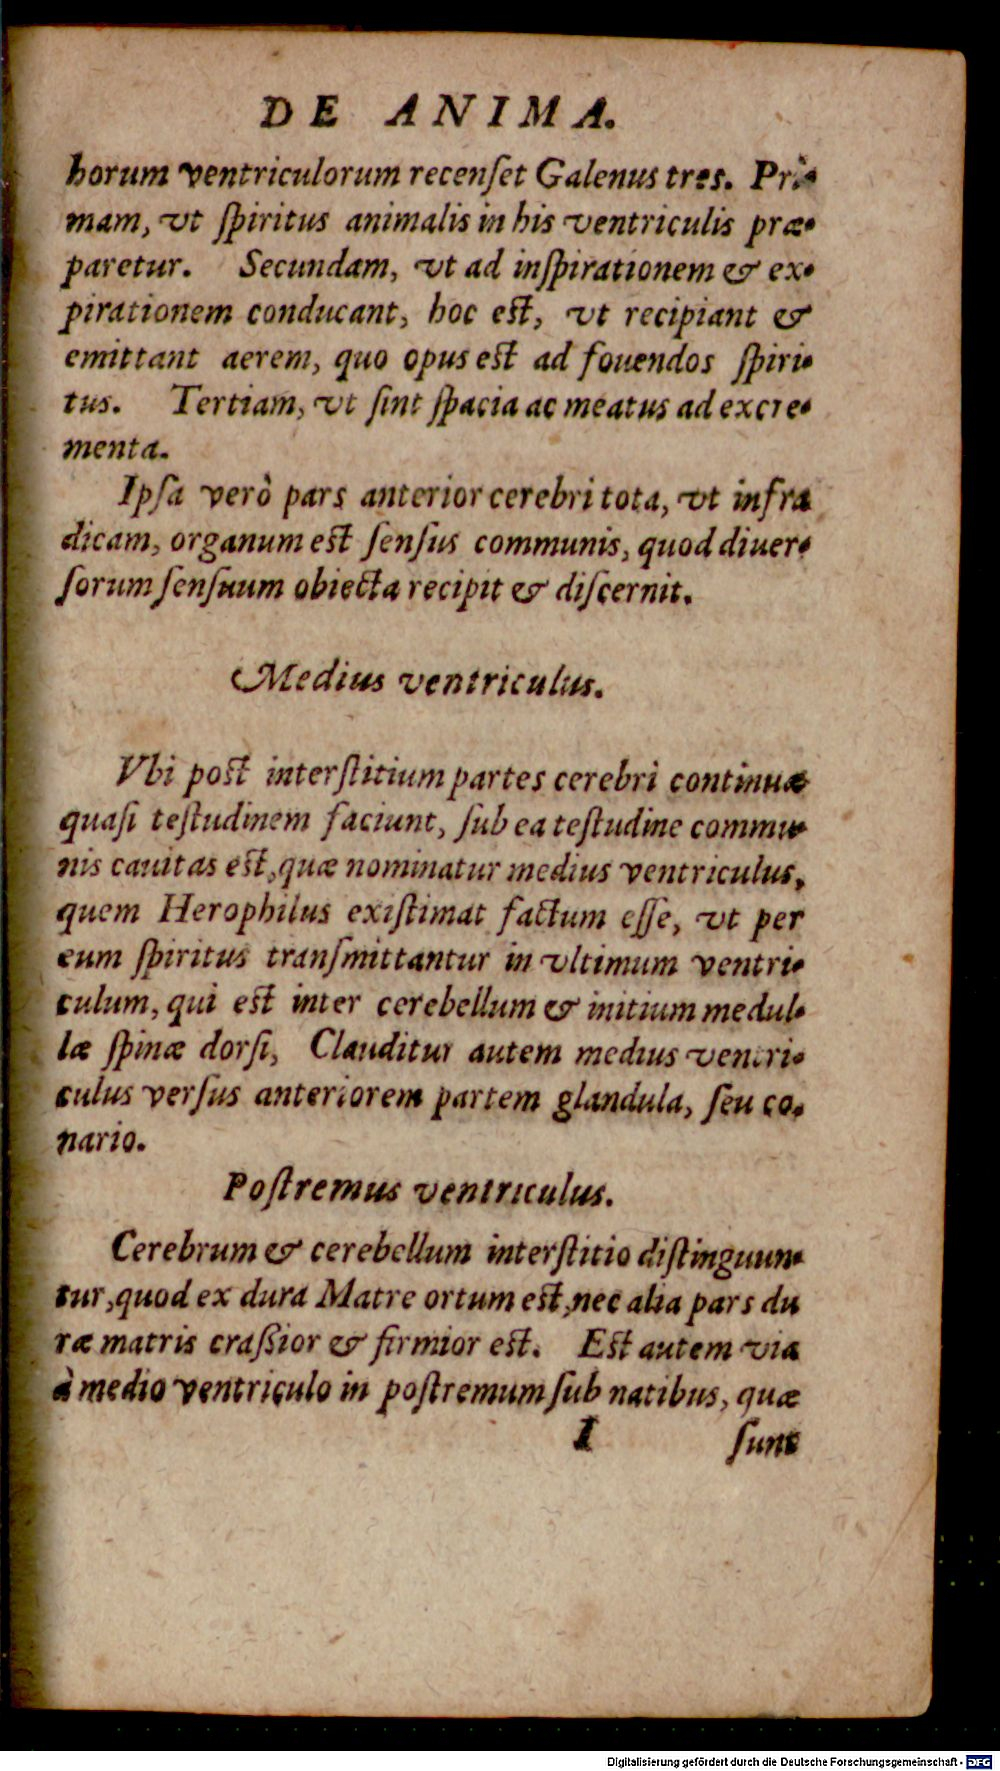 DE ANIMA.
horum ventriculorum recenſet Galenus tres. Pri-
mam, vt ſpiritus animalis in his ventriculis præ-
paretur. Secundam, vt ad inſpirationem & ex-
pirationem conducant, hoc est, vt recipiant &
emittant aerem, quo opus est ad fouendos ſpiri-
tus. Tertiam, vt ſint ſpacia ac meatus ad excre-
menta.
Ipſa verò pars anterior cerebri tota, vt infra
dicam, organum est ſenſus communis, quod diuer-
ſorum ſenſuum obiecta recipit & diſcernit.
Medius ventriculus.
Vbi post interſtitium partes cerebri continuæ
quaſi teſtudinem faciunt, ſub ea teſtudine commu-
nis cauitas est, quæ nominatur medius ventriculus,
quem Herophilus exiſtimat factum eſſe, vt per
eum ſpiritus tranſmittantur in vltimum ventri-
culum, qui est inter cerebellum & initium medul-
læ ſpinæ dorſi, Clauditur autem medius ventri-
culus verſus anteriorem partem glandula, ſeu co-
nario.
Poſtremus ventriculus.
Cerebrum & cerebellum interſtitio diſtinguun-
tur, quod ex dura Matre ortum est, nec alia pars du
ræ matris craßior & firmior est. Est autem via
à medio ventriculo in poſtremum ſub natibus, quæ
I ſunt
Digitalisierung gefördert durch die Deutsche Forschungsgemeinschaft - DFG